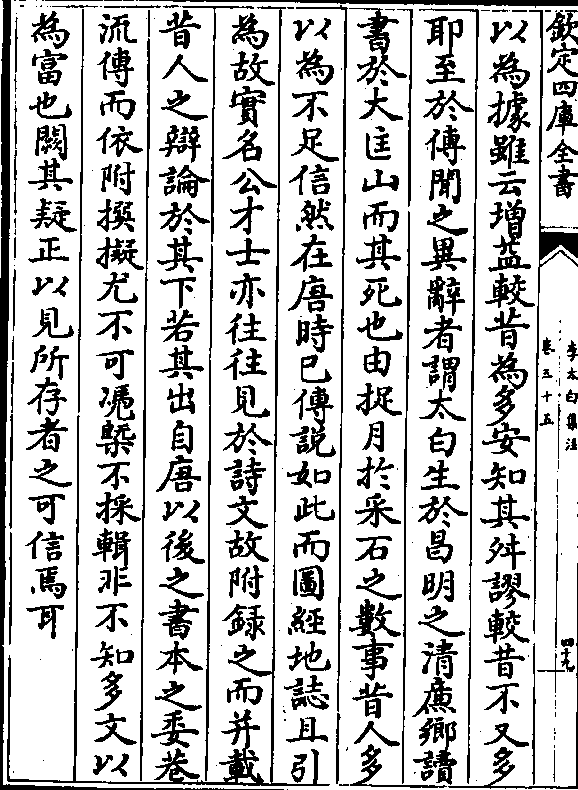 欽定四庫全書
李太白集注
卷三十五
四十九
以為據雖云増益較昔為多安知其舛謬較昔不又多
耶至於傳聞之異辭者謂太白生於昌明之清廉鄉讀
書於大匡山而其死也由捉月於采石之數事昔人多
以為不足信然在唐時已傳說如此而圖經地誌且引
為故實名公才士亦往往見於詩文故附録之而并載
昔人之辯論於其下若其出自唐以後之書本之委巷
流傳而依附撰擬尤不可慿槩不採輯非不知多文以
為富也闕其疑正以見所存者之可信焉耳